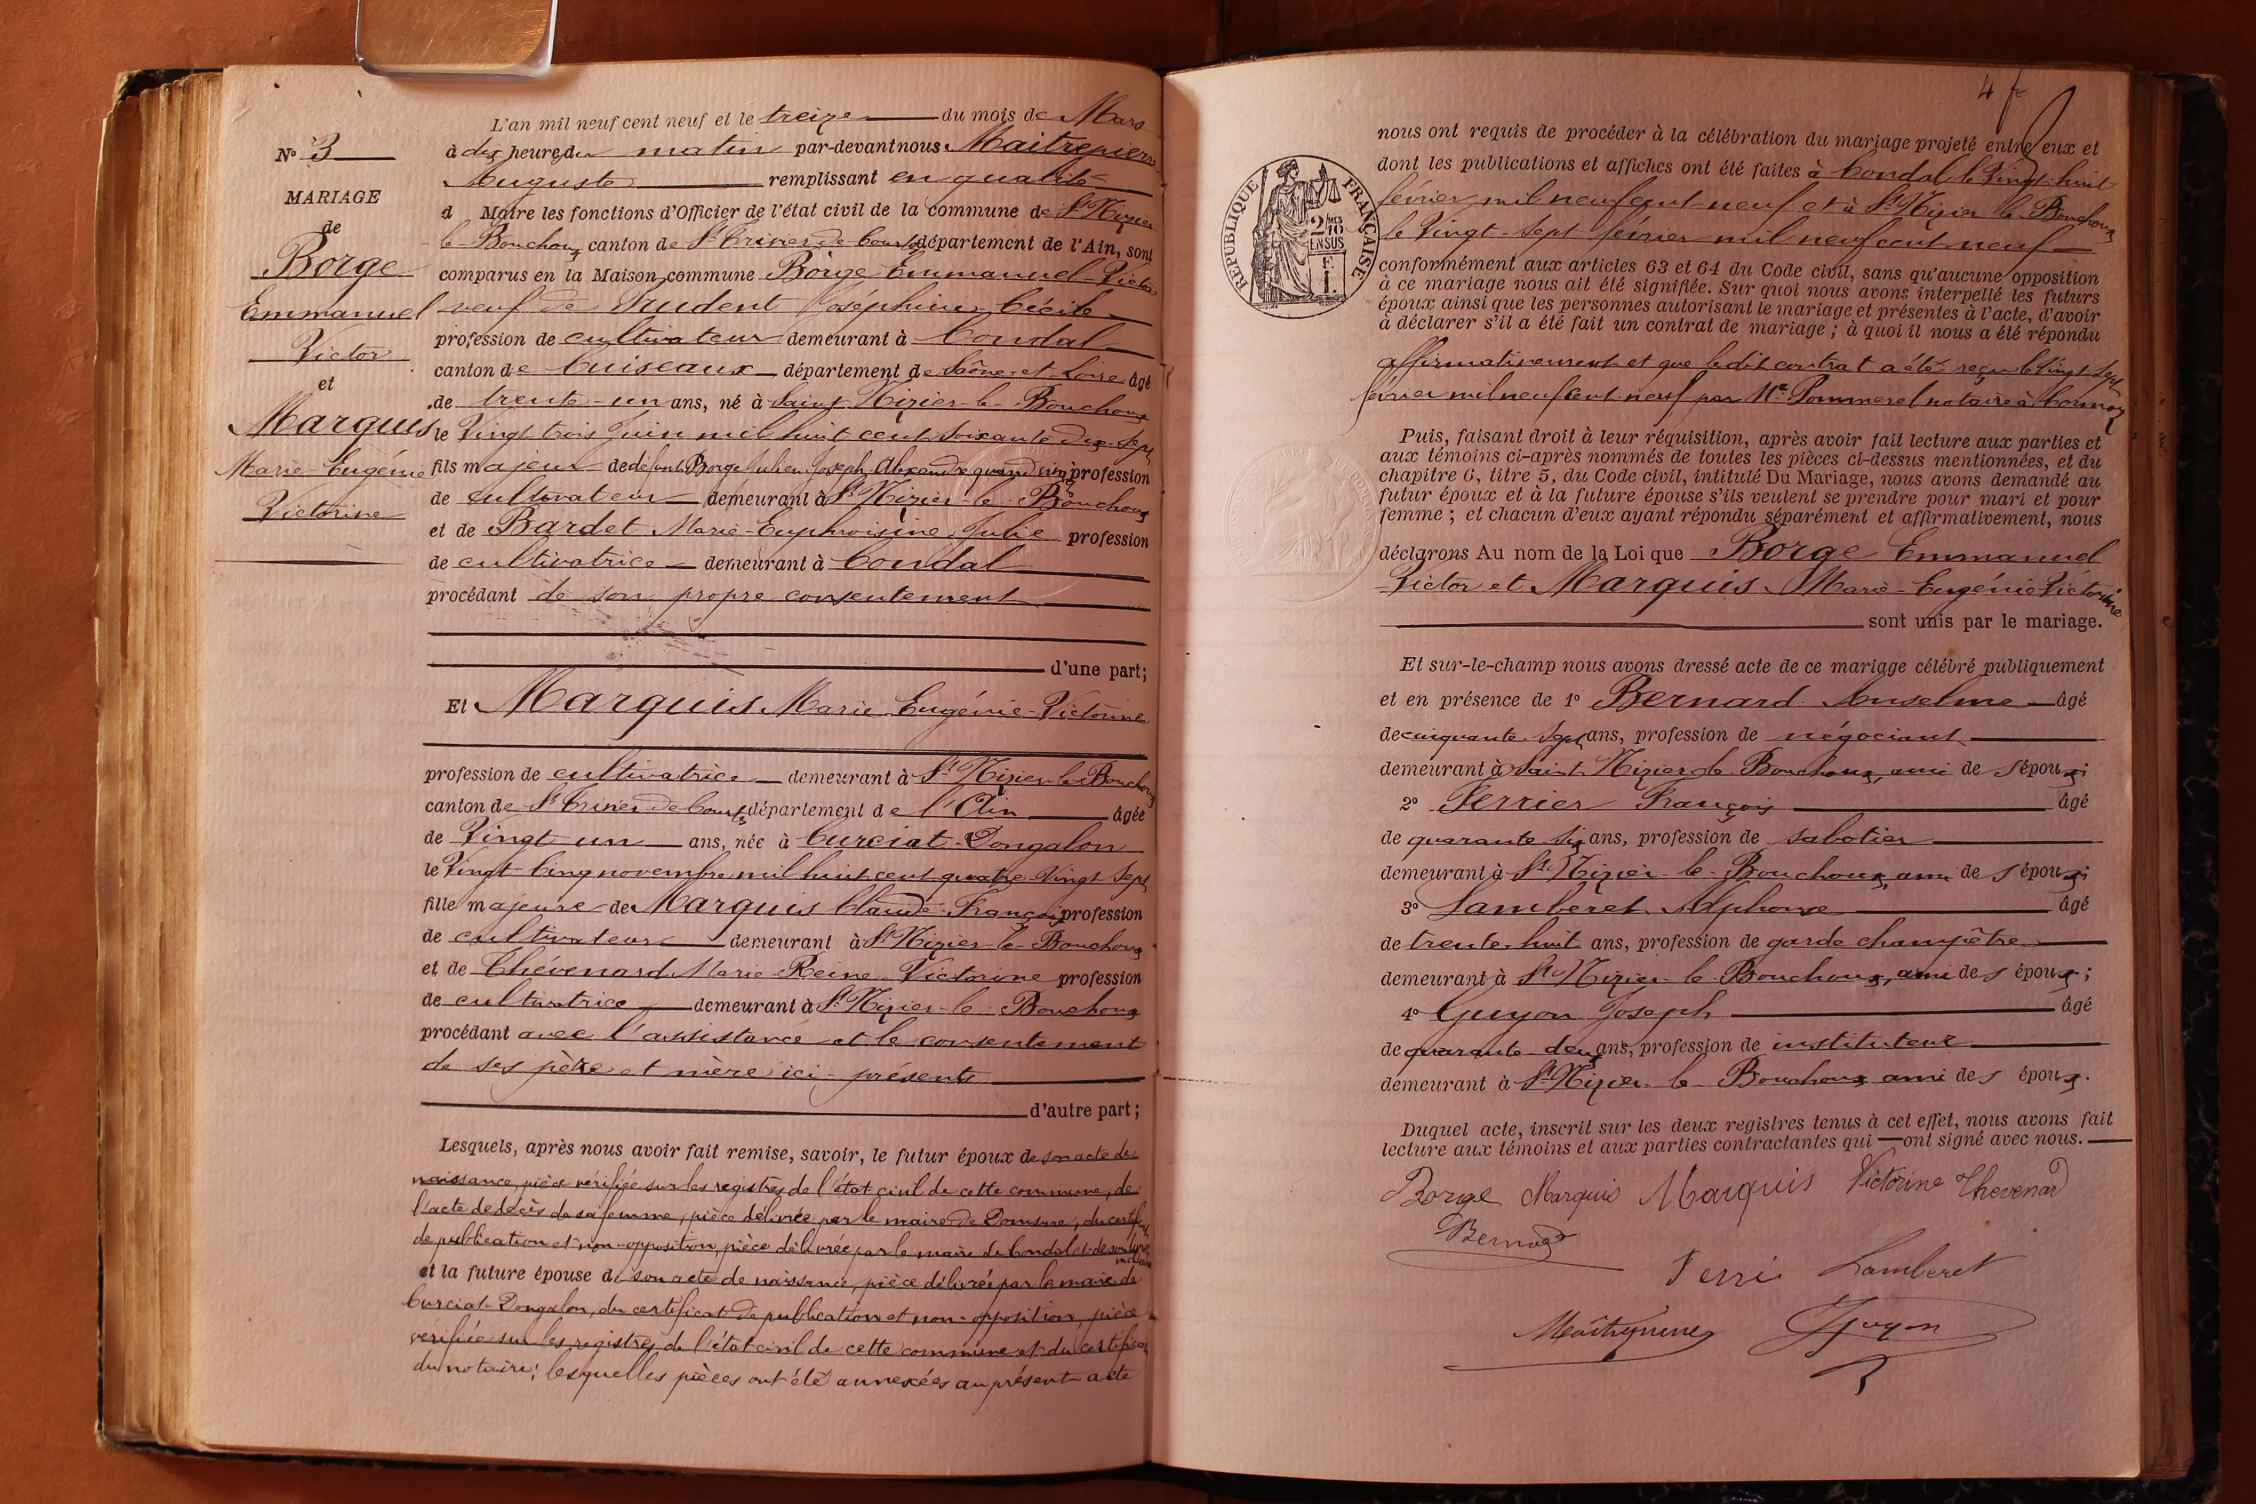 N° 3
MARIAGE
de
Borge
Emmanuel
Victor
et
Marquis
Marie-Eugénie
Victorine
L'an mil neuf cent neuf et le treize du mois de Mars
à dix heures du matin par-devant nous Maitrepierre
Auguste remplissant en qualité
d Maire les fonctions d'Officier de l'état civil de la commune de St Nizier
le Bouchoux canton de St Trivier de Courtes département de l'Ain, sont
comparus en la Maison commune Borge Emmanuel-Victor
veuf de Prudent Joséphine Cécile
profession de cultivateur demeurant à Condal
canton de Cuiseaux département de Saône-et-Loire âgé
de trente-un ans, né à Saint Nizier-le-Bouchoux
le Vingt trois Juin mil huit cent soixante dix-sept
fils majeur de défunt Borge Julien Joseph Alexandre quand vivait profession
de cultivateur demeurant à St Nizier-le-Bouchoux
et de Bardet Marie-Euphroisine Julie profession
de cultivatrice demeurant à Condal
procédant de son propre consentement
d'une part;
Et Marquis Marie Eugénie-Victorine
profession de cultivatrice demeurant à St Nizier-le-Bouchoux
canton de St Trivier de Courtes département de l'Ain âgée
de Vingt un ans, née à Curciat-Dongalon
le Vingt Cinq novembre mil huit cent quatre Vingt Sept
fille majeure de Marquis Claude-François profession
de cultivateur demeurant à St Nizier-le-Bouchoux
et de Chévenard Marie-Reine-Victorine profession
de cultivatrice demeurant à St Nizier-le-Bouchoux
procédant avec l'assistance et le consentement
de ses père et mère ici-présents
d'autre part;
Lesquels, après nous avoir fait remise, savoir, le futur époux de son acte de
naissance, pièce vérifiée sur les registres de l'état civil de cette commune, de
l'acte de décès de sa femme, pièce délivrée par le maire de Domsure, du certificat
de publication et non-opposition, pièce délivrée par le maire de Condal et de son
et la future épouse de son acte de naissance, pièce délivrée par le maire de
Curciat-Dongalon, du certificat de publication et non-opposition, pièce
vérifiée sur les registres de l'état civil de cette commune et du certificat
du notaire; lesquelles pièces ont été annexées au présent acte
4
RÉPUBLIQUE FRANÇAISE
2/10
EN SUS
1 F.
nous ont requis de procéder à la célébration du mariage projeté entre eux et
dont les publications et affiches ont été faites à Condal le Vingt-huit
février mil neuf cent neuf et à St Nizier le Bouchoux
le Vingt-sept février mil neuf cent neuf
conformément aux articles 63 et 64 du Code civil, sans qu'aucune opposition
à ce mariage nous ait été signifiée. Sur quoi nous avons interpellé les futurs
époux ainsi que les personnes autorisant le mariage et présentes à l'acte, d'avoir
à déclarer s'il a été fait un contrat de mariage; à quoi il nous a été répondu
affirmativement et que ledit contrat a été reçu le Vingt Sept
février mil neuf cent neuf par Me Pommerel notaire à Cormoz
Puis, faisant droit à leur réquisition, après avoir fait lecture aux parties et
aux témoins ci-après nommés de toutes les pièces ci-dessus mentionnées, et du
chapitre 6, titre 5, du Code civil, intitulé Du Mariage, nous avons demandé au
futur époux et à la future épouse s'ils veulent se prendre pour mari et pour
femme; et chacun d'eux ayant répondu séparément et affirmativement, nous
déclarons Au nom de la Loi que Borge Emmanuel
Victor et Marquis Marie-Eugénie Victorine
sont unis par le mariage.
Et sur-le-champ nous avons dressé acte de ce mariage célébré publiquement
et en présence de 1° Bernard Anselme âgé
de cinquante sept ans, profession de négociant
demeurant à Saint Nizier-le-Bouchoux, ami de s époux;
2° Ferrier François âgé
de quarante six ans, profession de sabotier
demeurant à St Nizier-le-Bouchoux, ami de s époux;
3° Lamberet Alphonse âgé
de trente-huit ans, profession de garde champêtre
demeurant à St Nizier-le-Bouchoux, ami de s époux;
4° Guyon Joseph âgé
de quarante-deux ans, profession de instituteur
demeurant à St Nizier-le-Bouchoux ami de s époux.
Duquel acte, inscrit sur les deux registres tenus à cet effet, nous avons fait
lecture aux témoins et aux parties contractantes qui ont signé avec nous.
Borge Marquis Marquis Victorine Thevenard
Bernard
Ferrie Lamberet
Maitrepierre Guyon